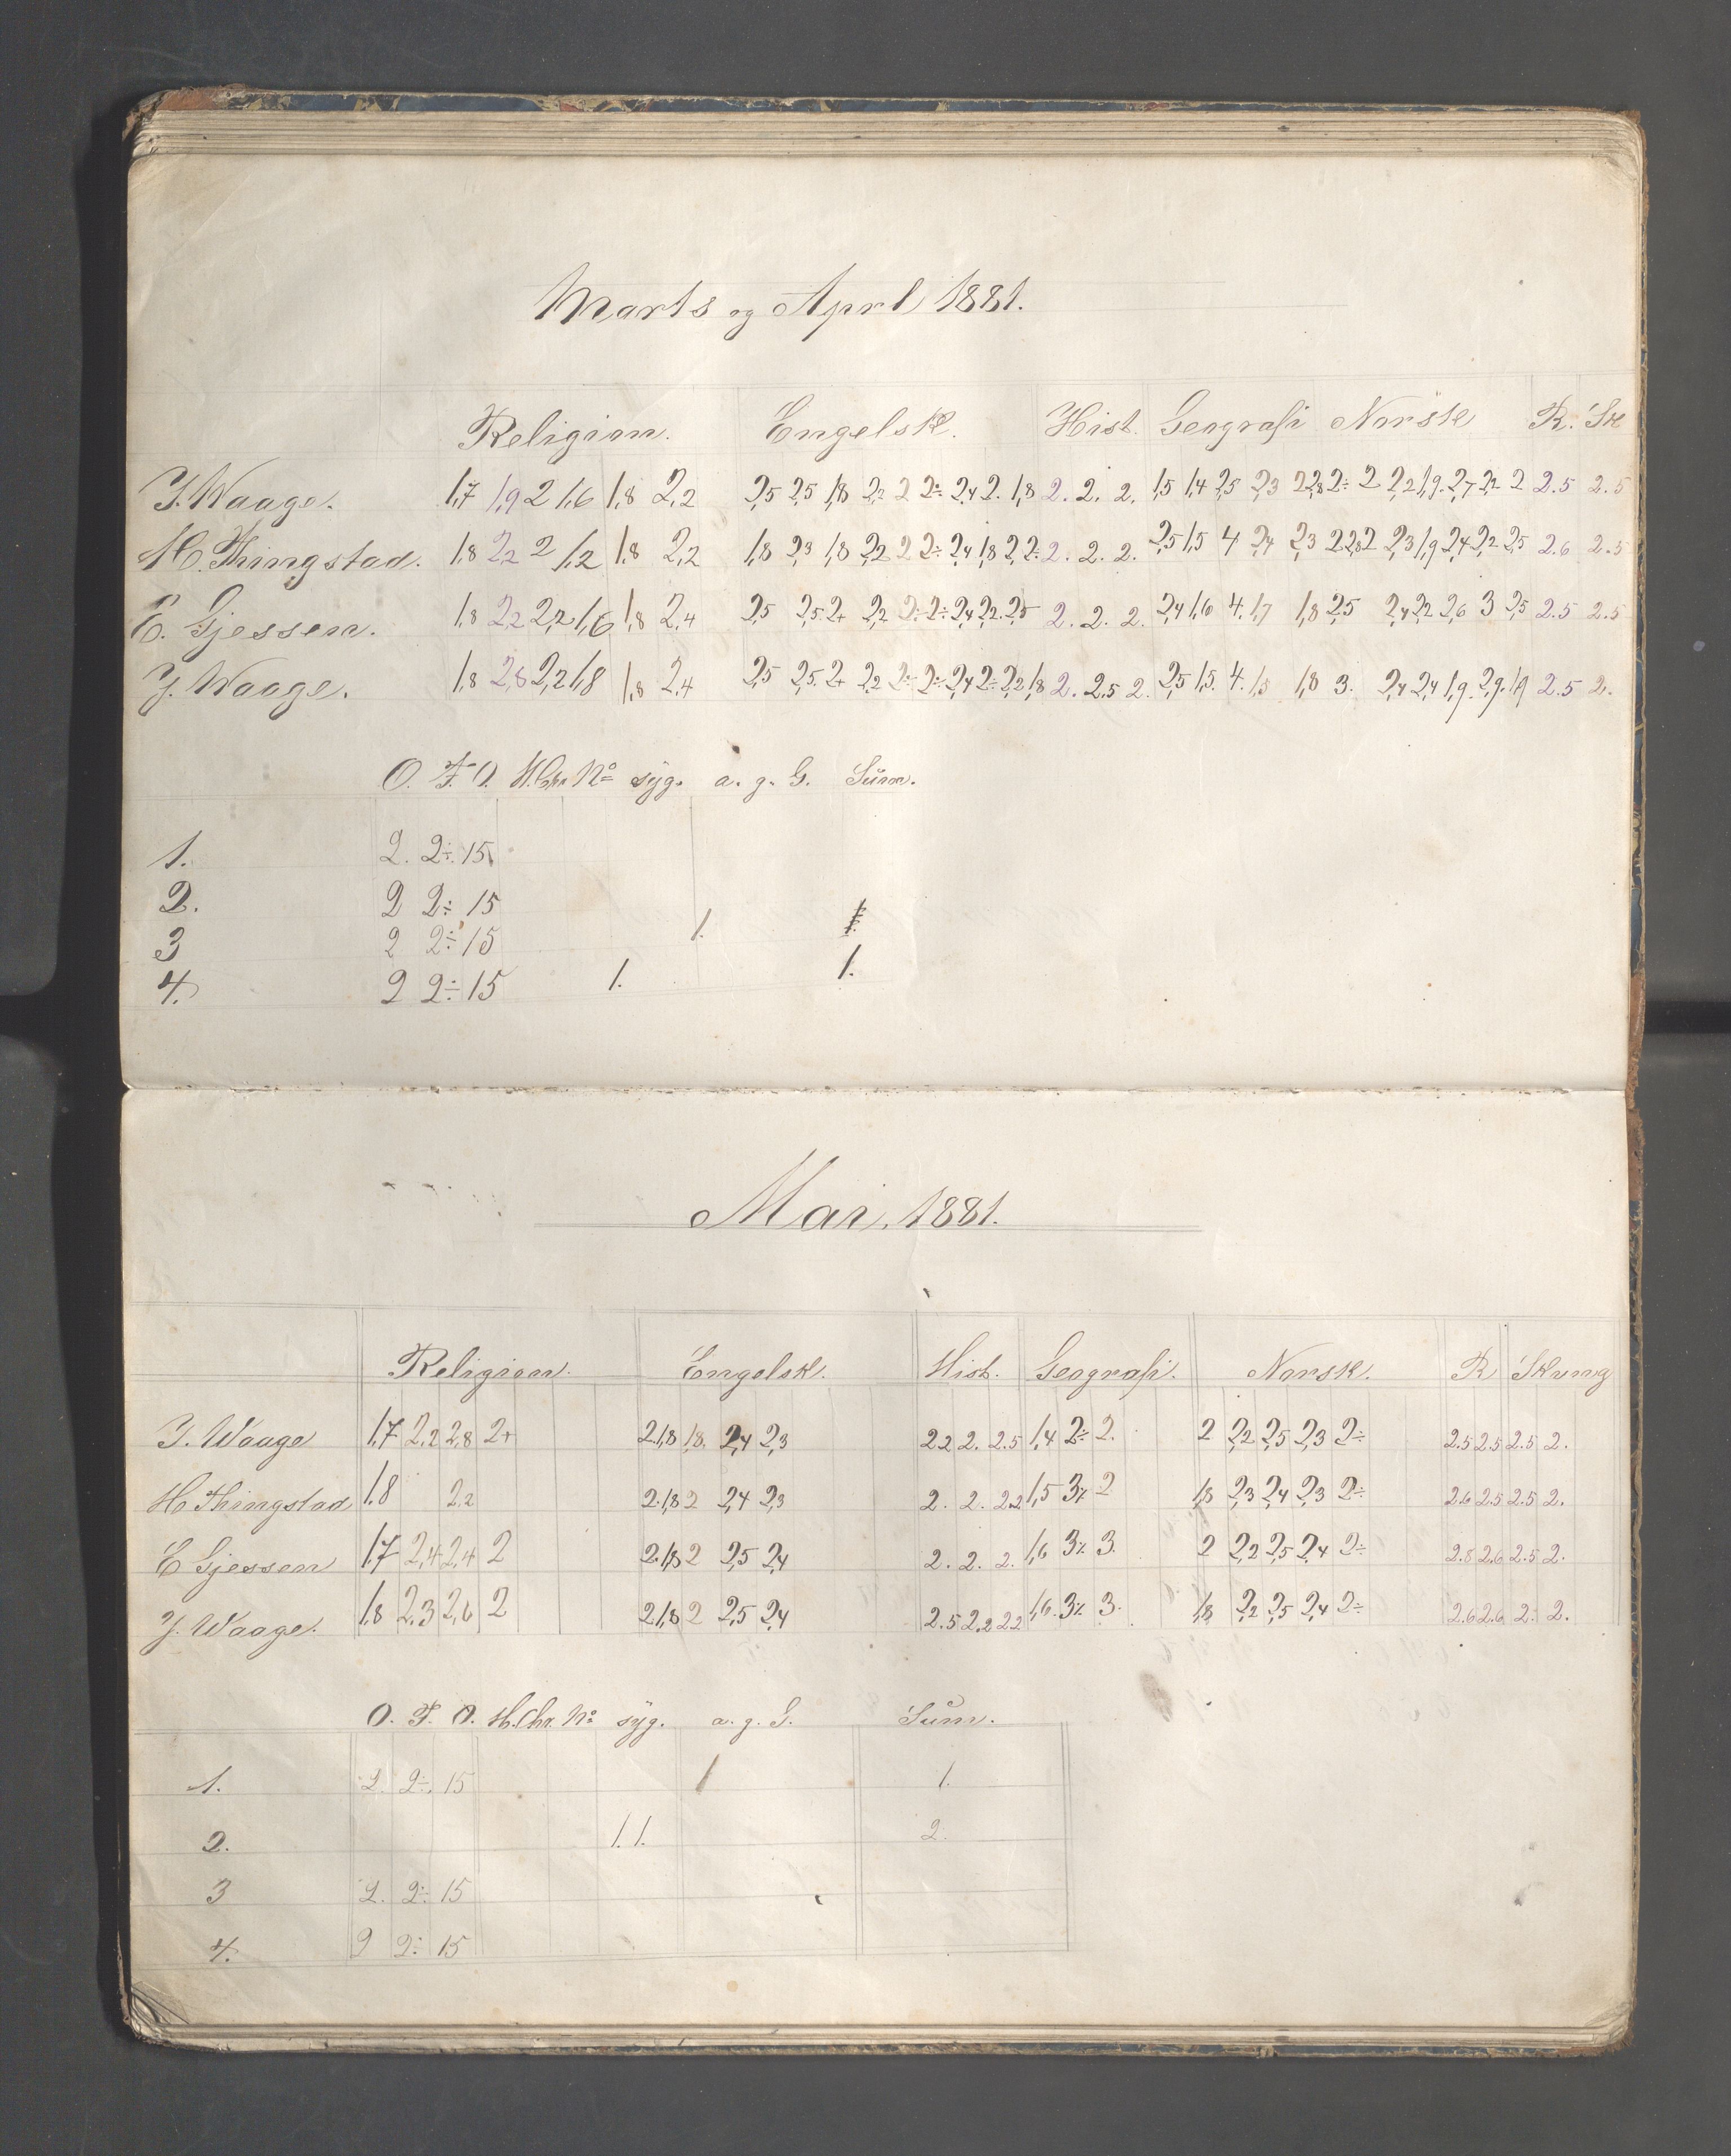 Marts og Aprl 1881.
Religion. Engelsk. Hist. Geografi Norsk R. Sk
J. Waage. 1,7 1,9 2 1,6 1,8 2,2 2,5 2,5 1,8 2,2 2 2÷ 2,4 2. 1,8 2. 2. 2. 1,5 1,4 2,5 2,3 2 2,8 2÷ 2 2,2 1,9. 2,7 2,2 2 2.5 2.5
H. Thingstad. 1,8 2,2 2 1,2 1,8 2,2 1,8 2,3 1,8 2,2 2 2÷ 2,4 1,8 2,2 2÷ 2. 2. 2. 2,5 1,5 4 2,4 2,3 2 2,8 2 2,3 1,9 2,4 2,2 2,5 2.6 2.5
E. Gjessen. 1,8 2,2 2,2 1,6 1,8 2,4 2,5 2,5 2+ 2,2 2÷ 2÷ 2,4 2,2. 2,5 2. 2. 2. 2,4 1,6 4. 1,7 1,8 2,5 2,4 2,2 2,6 3 2,5 2.5 2.5
J. Waage. 1,8 2,8 2,2 1,8 1,8 2,4 2,5 2,5 2+ 2,2 2÷ 2÷ 2,4 2÷ 2,2 1,8 2. 2.5 2. 2,5 1,5. 4. 1,5 1,8 3. 2,4 2,4 1,9. 2,9. 1,9 2.5 2.
O. F. O. H.Chr. No syg. a. g. G. Sum.
1. 2. 2÷. 15
2. 2 2÷ 15
3 2 2÷ 15 1. 1.
4. 2 2÷ 15 1. 1.
Mai. 1881.
Religion. Engelsk. Hist. Geografi. Norsk. R Skrivng
J. Waage 1,7 2,2 2,8 2+ 2. 1,8 1,8. 2,4 2,3 2.2 2. 2.5 1,4 2÷ 2. 2 2,2 2,5 2,3 2÷ 2.5 2.5 2.5 2.
H Thingstad 1,8 2,2 2. 1,8 2 2,4 2,3 2. 2. 2.2 1,5 3⁒ 2 1,8 2,3 2,4 2,3 2÷ 2.6 2.5 2.5 2.
E Gjessen 1,7 2,4 2,4 2 2. 1,8 2 2,5 2,4 2. 2. 2. 1,6 3⁒ 3. 2 2,2 2,5 2,4 2÷ 2.8 2.6 2.5 2.
J. Waage. 1,8 2,3 2,6 2 2. 1,8 2 2,5 2,4 2.5 2.2 2.2 1,6. 3⁒ 3. 1,8 2,2 2,5 2,4 2÷ 2.6 2.6 2. 2.
O. F. O. H.Chr. No syg. a. g. G. Sum.
1. 2. 2÷. 15 1 1.
2. 1. 1. 2.
3 2. 2÷ 15
4. 2 2÷ 15